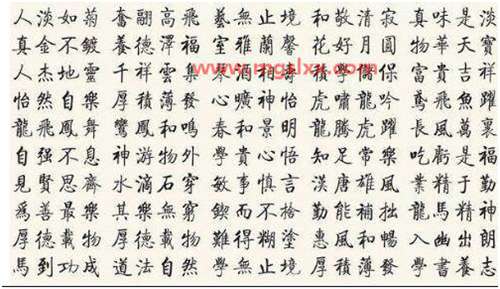 人淡如菊 奮翮高飛 藝無止境 和敬清寂 真味是淡
真金不鍍 養德澤福 室雅蘭馨 花好月圓 物華天寶
人杰地靈 千祥雲集 琴心酒 富貴吉祥
www.mgslxx.com
怡然自樂 厚積薄發 心曠神怡 虎嘯龍吟 鳶飛魚躍
龍飛鳳舞 鸞鳳和鳴 春和景明 龍騰虎躍 長風萬裏
自强不息 神游物外 學貴心悟 知足常樂 吃虧是福
見賢思齊 水滴石穿 敏事慎言 漢唐雄風 業精于勤
爲善最樂 其樂無窮 鍥而不捨 勤能補拙 龍馬精神
厚德載物 厚德載物 難得糊塗 惠風和暢 入幽出朗
馬到功成 道法自然 學無止境 厚積薄發 學書養志